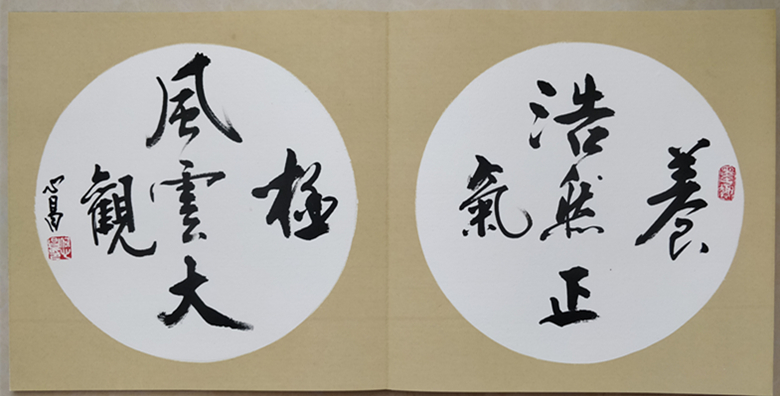 養
浩然正
氣
極
風雲大
觀
心昌